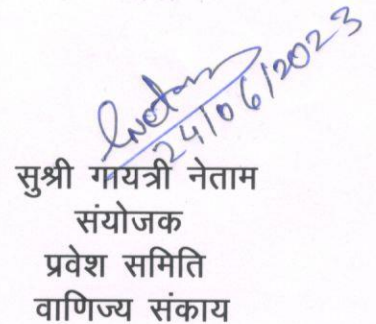 24/06/2023
सुश्री गायत्री नेताम
संयोजक
प्रवेश समिति
वाणिज्य संकाय